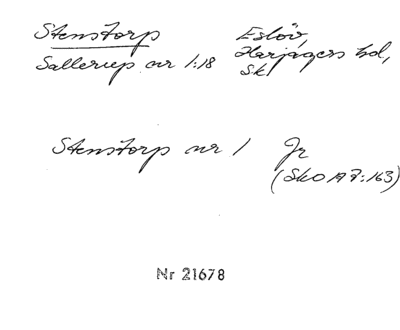 Stenstorp Eslöv,
Sallerup nr 1:18 Harjagers hd,
Sk
Stenstorp nr 1 Jr
(SkO A7:163)
Nr 21678